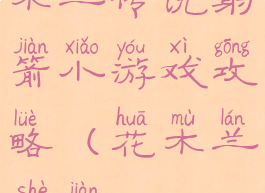 木兰传说射
jiàn xiǎo yóu xì gōng
箭小游戏攻
lüè huā mù lán
略（花木兰
shè jiàn